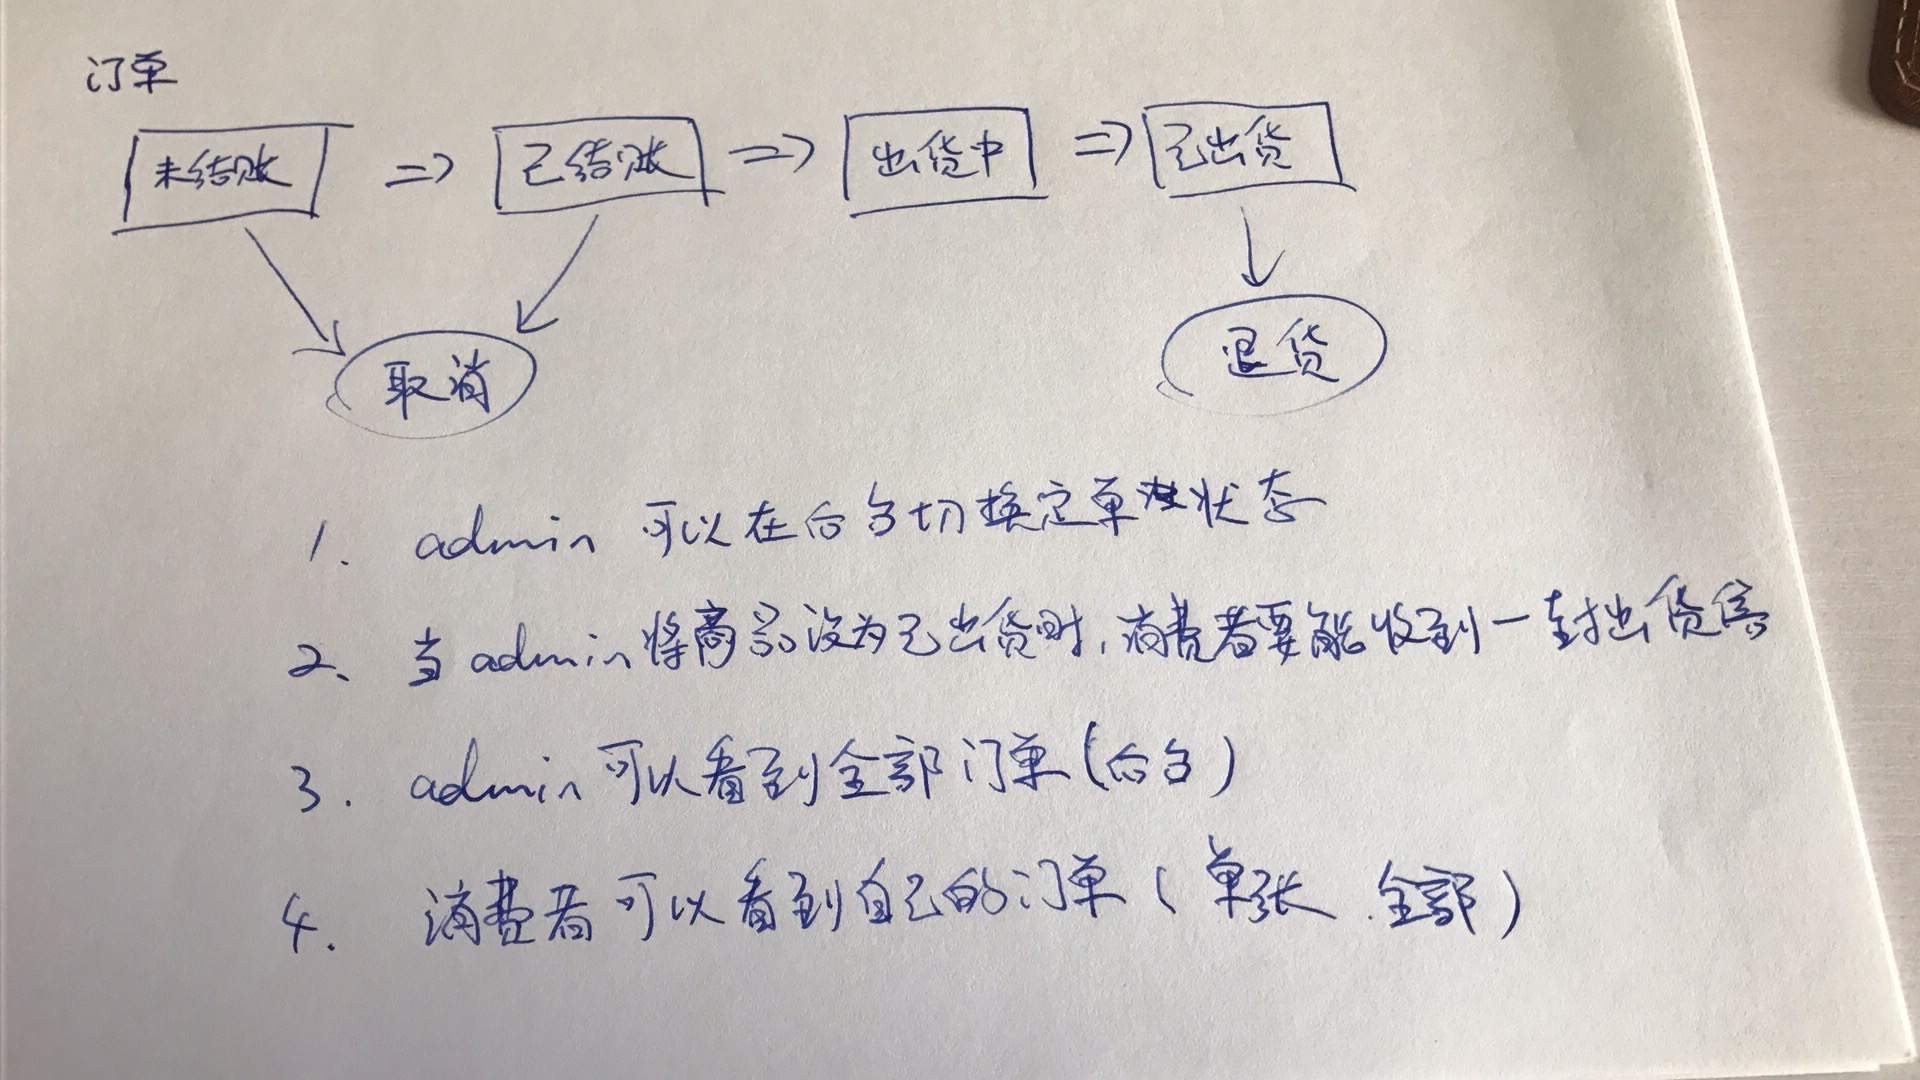 订单
未结账 => 已结账 => 出货中 => 已出货
取消 退货
1. admin 可以在后台切换定单状态
2、当admin将商品设为已出货时,消费者要能收到一封出货信
3. admin可以看到全部订单(后台)
4. 消费者可以看到自己的订单(单张、全部)